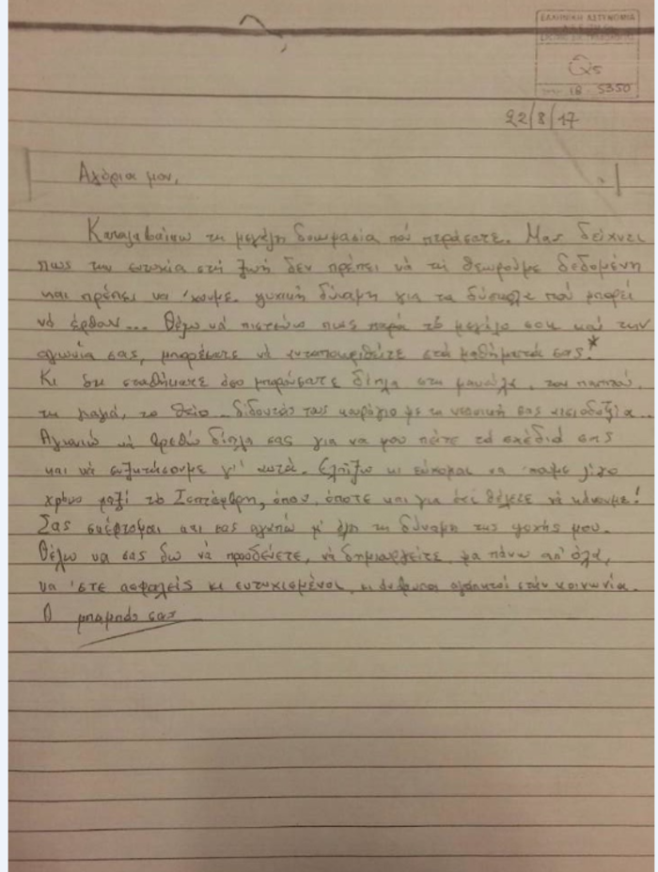 ΕΛΛΗΝΙΚΗ ΑΣΤΥΝΟΜΙΑ
Q5
18 - 5350
22/8/17
Αγόρια μου,
Καταλαβαίνω τη μεγάλη δοκιμασία πού περάσατε. Μας δείχνει
πως την ευτυχία στή ζωή δεν πρέπει νά τή θεωρούμε δεδομένη
και πρέπει να 'χουμε ψυχική δύναμη για τα δύσκολα πού μπορεί
νά έρθουν... Θέλω νά πιστεύω πως παρά τό μεγάλο σοκ καί την
αγωνία σας, μπορέσατε νά ανταποκριθείτε στά μαθήματά σας!*
Κι ότι σταθήκατε όσο μπορούσατε δίπλα στη μανούλα, τον παππού,
τη γιαγιά, το θείο... δίδοντάς τους κουράγιο με τη νεανική σας αισιοδοξία...
Αγωνιώ νά βρεθώ δίπλα σας για να μου πείτε τά σχέδιά σας
και νά συζητήσουμε γι' αυτά. Ελπίζω κι εύχομαι να 'χουμε λίγο
χρόνο μαζί το Σεπτέμβρη, όπου, όποτε και για ό,τι θέλετε νά κάνουμε!
Σας σκέφτομαι και σας αγαπώ μ' όλη τη δύναμη της ψυχής μου.
Θέλω να σας δω νά προοδεύετε, νά δημιουργείτε, μα πάνω απ' όλα,
να 'στε ασφαλείς κι ευτυχισμένοι, κι άνθρωποι αγαπητοί στήν κοινωνία.
Ο μπαμπάς σας